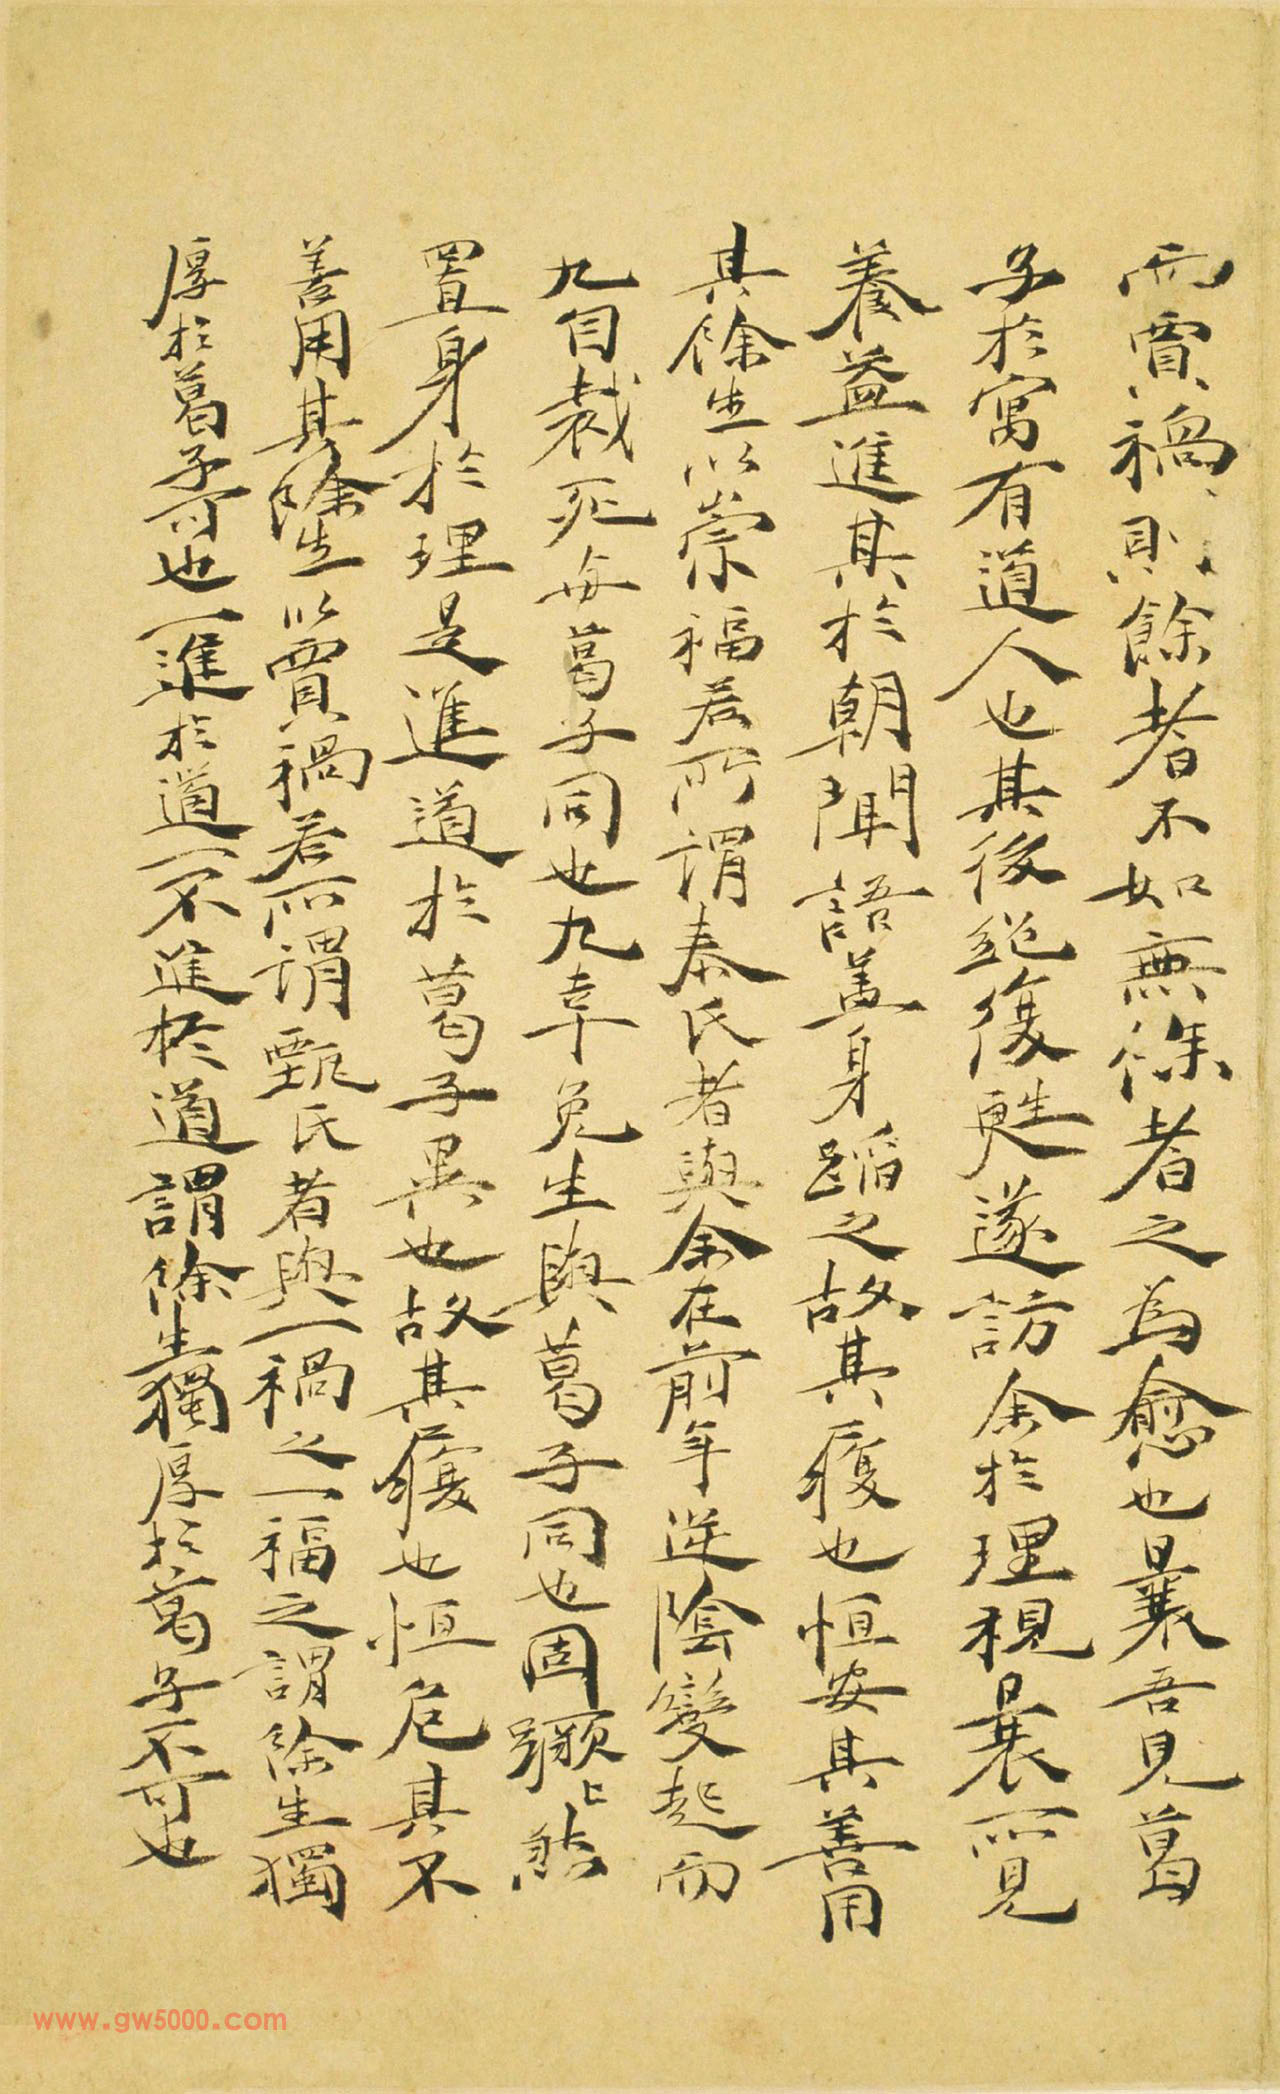 而賈禍則餘者不如無餘者之為愈也曩吾見葛
子於寓有道人也其後絕復甦遂訪余於理視曩所見
養益進其於朝聞語蓋身蹈之故其履也恒安其善用
其餘生以崇福若所謂秦氏者與余在前年逆陰變起而
九自裁死毋葛子同也九幸免生與葛子同也固蹶上然
置身於理是進道於葛子異也故其履也恒危其不
善用其餘生以賈禍若所謂甄氏者與一禍之一福之謂餘生獨
厚於葛子可也一進於道一不進於道謂餘生獨厚於葛子不可也
www.gw5000.com